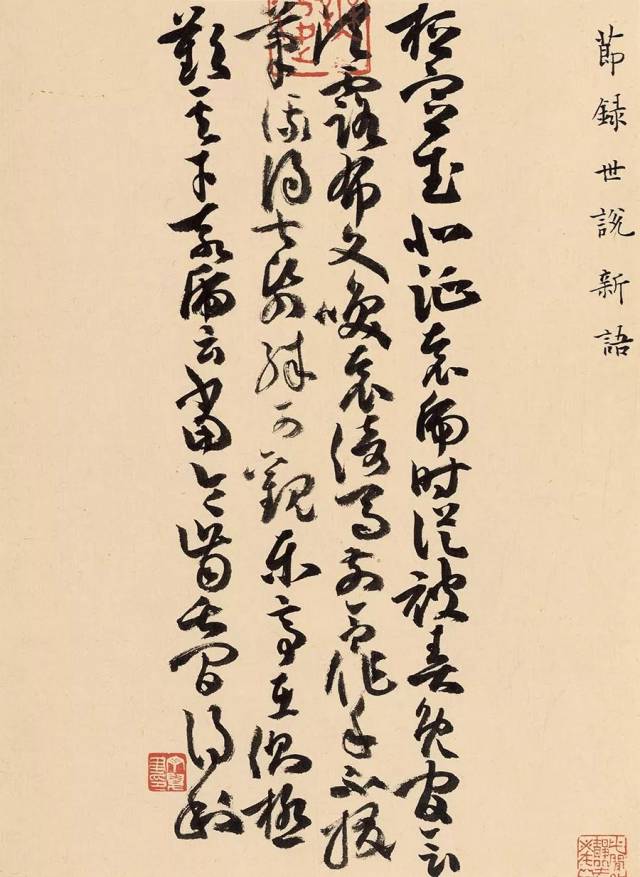 節録世說新語
桓宣武北征袁虎時從被責免官會
須露布文喚袁倚馬前令作手不輟
筆俄得七紙殊可觀東亭在側極
歎其才袁虎云當令齒舌間得利